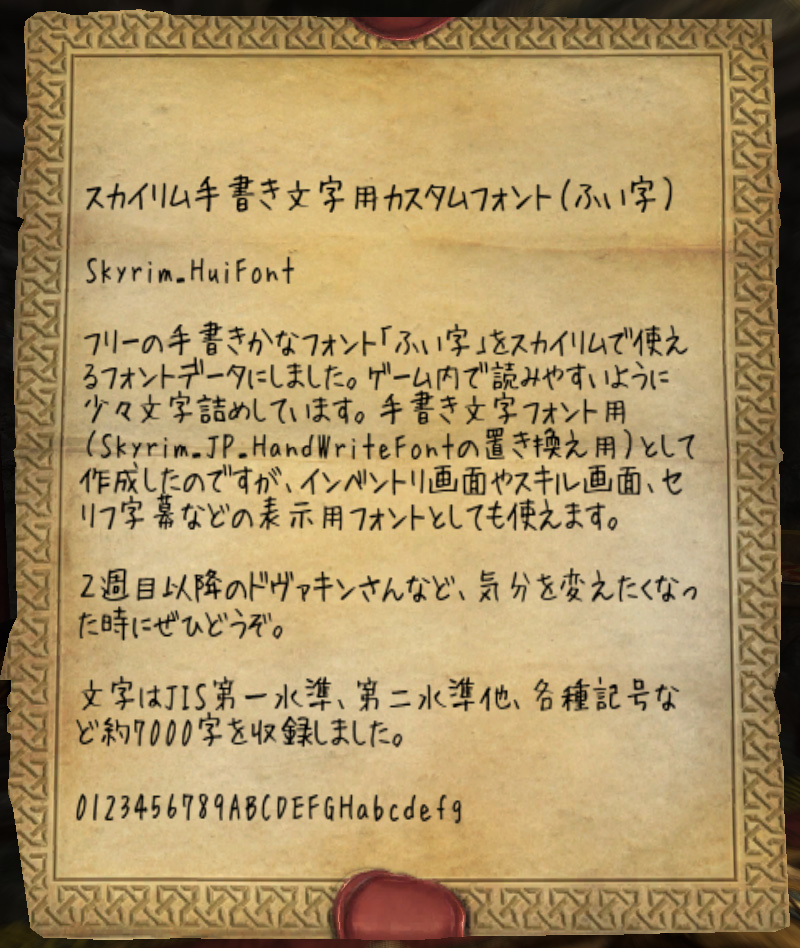 スカイリム手書き文字用カスタムフォント(ふい字)
Skyrim_HuiFont
フリーの手書きかなフォント「ふい字」をスカイリムで使え
るフォントデータにしました。ゲーム内で読みやすいように
少々文字詰めしています。手書き文字フォント用
(Skyrim_JP_HandWriteFontの置き換え用)として
作成したのですが、インベントリ画面やスキル画面、セ
リフ字幕などの表示用フォントとしても使えます。
2週目以降のドヴァキンさんなど、気分を変えたくなっ
た時にぜひどうぞ。
文字はJIS第一水準、第二水準他、各種記号な
ど約7000字を収録しました。
0123456789ABCDEFGHabcdefg